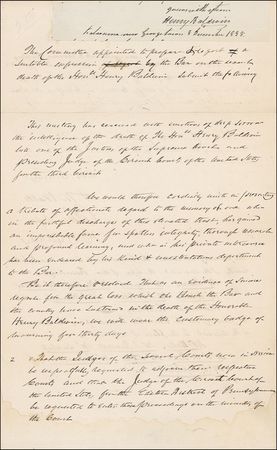 Henry Baldwin
The Committee appointed to prepare & report a
suitable expression by the Bar on the
death of the Honble Henry Baldwin Submit the following
This meeting has received with emotions of deep sorrow
the intelligence of the death of the Honble Henry Baldwin
late one of the Justices of the Supreme Court and
presiding Judge of the Circuit Court of the United States
for the third circuit
We would therefore cordially unite in
a tribute of affectionate regard to the memory of one who
in the faithful discharge of this elevated trust, has gained
an imperishable fame for spotless integrity, thorough research
and profound learning, and who in his private intercourse
has been endeared by his kind & deportment
to the Bar.
Be it therefore resolved That as an evidence of sincere
regrets for the great loss which the Bench the Bar and
the country have sustained in the death of the Honorable
Henry Baldwin, we will wear the customary badge of
mourning for thirty days
2 That the Judges of the Several Courts now in
be respectfully requested to adjourn their respective
Courts and that the Judge of the Circuit Court of
the United States, for the Eastern District of Pennsylvania
be requested to enter these proceedings on the minutes of
the Court